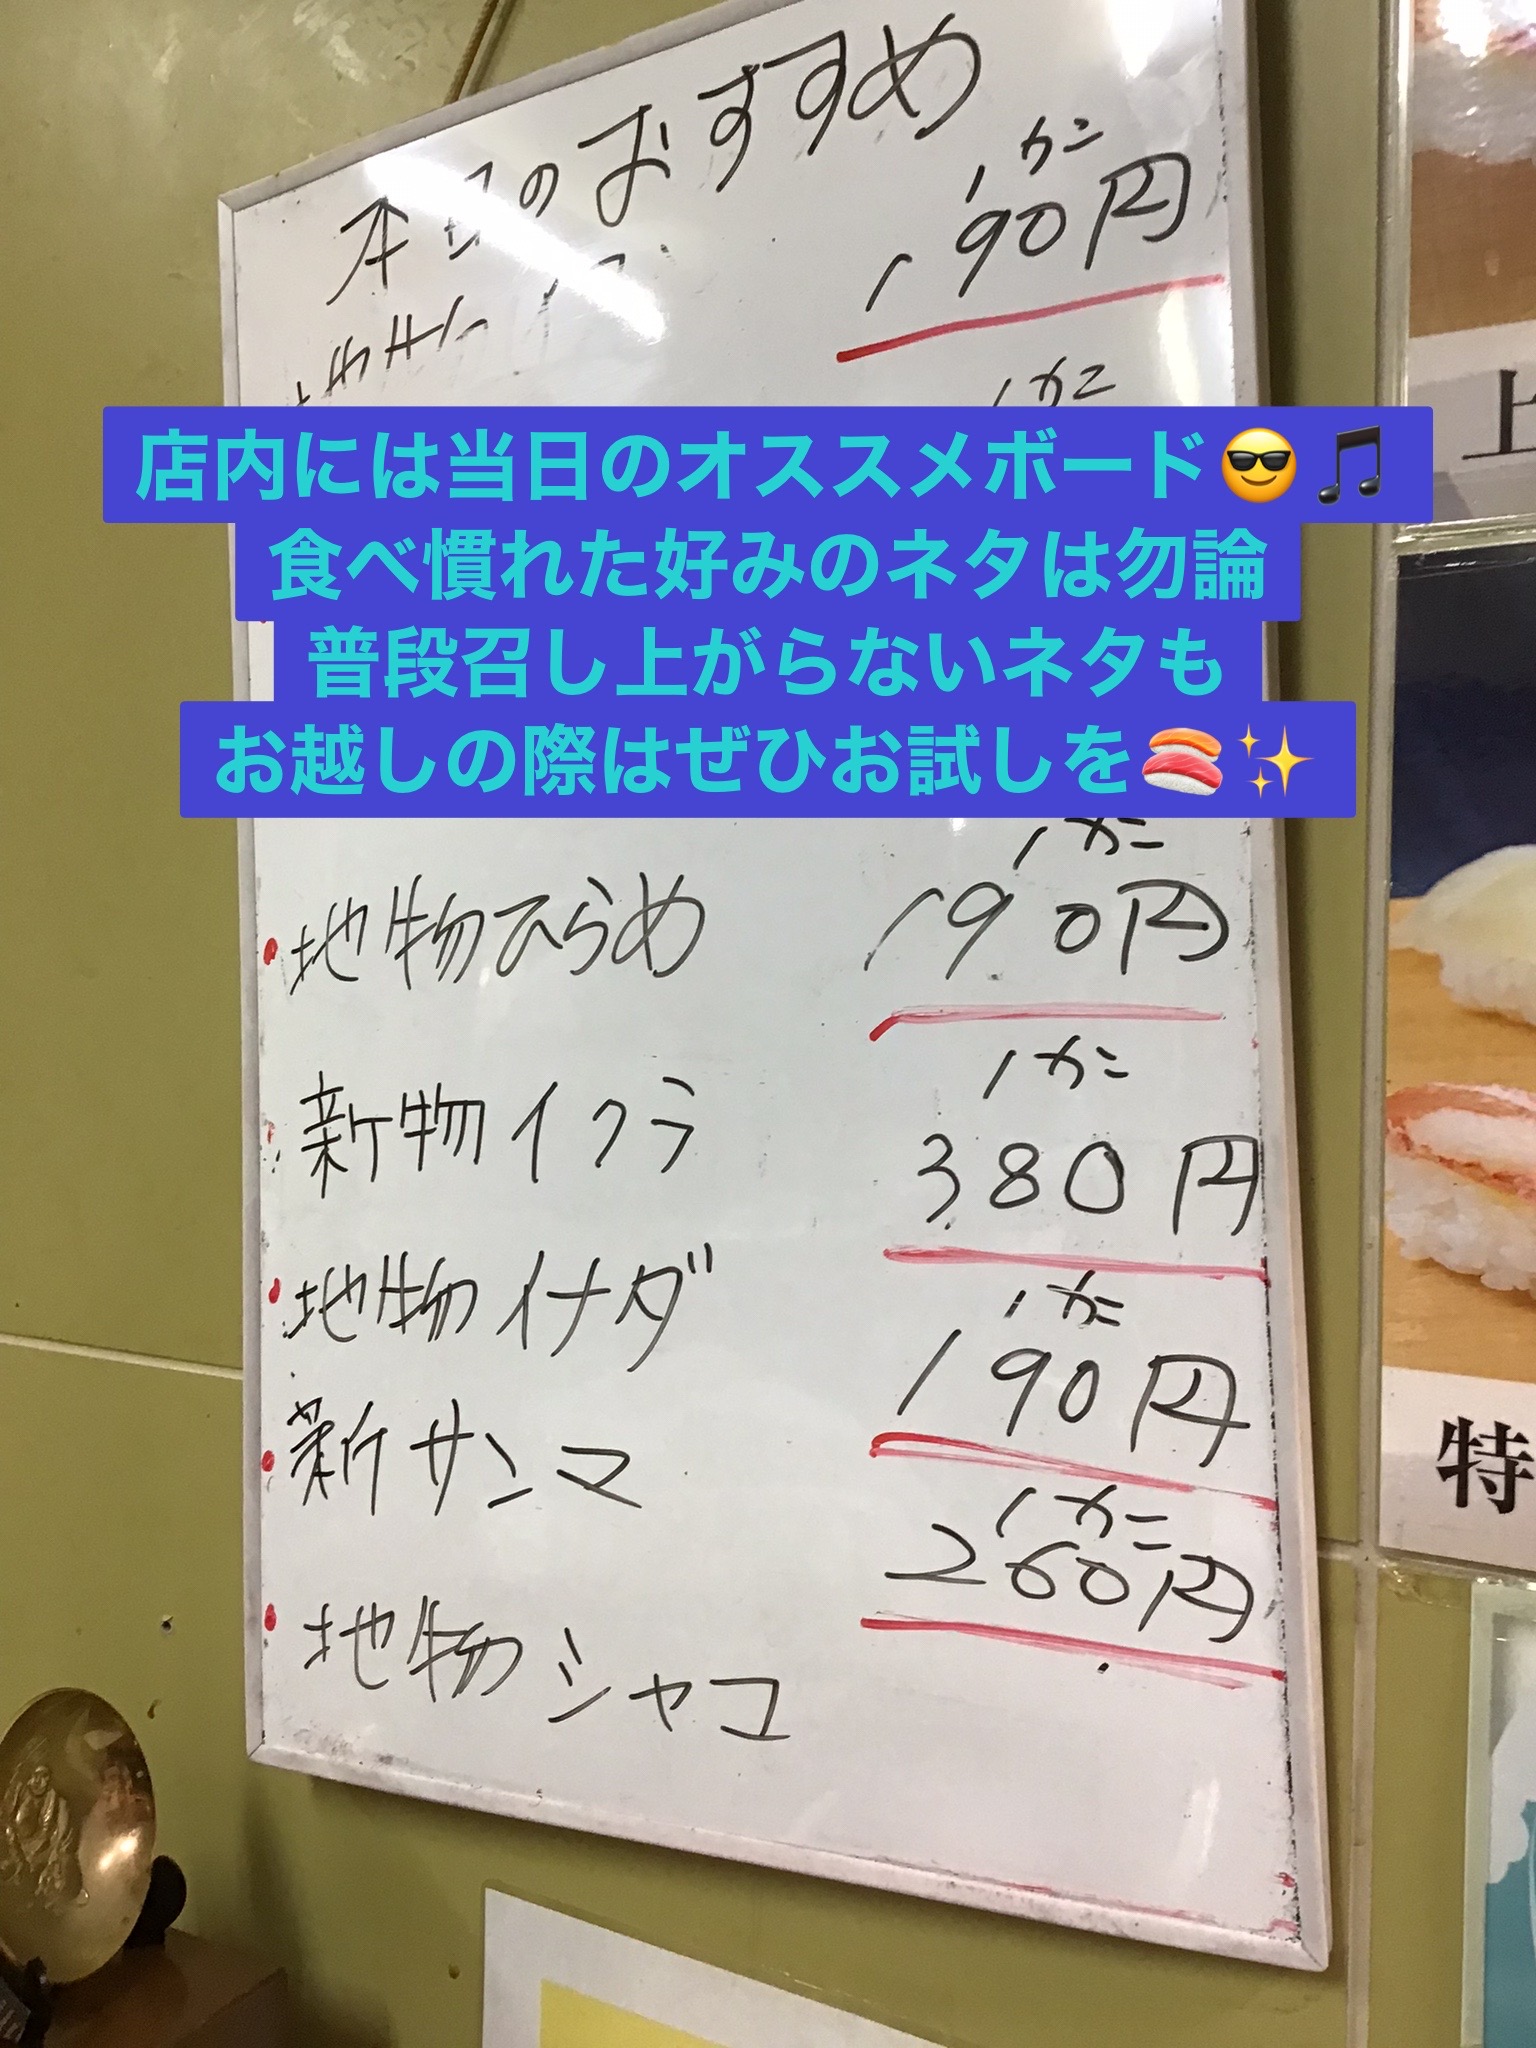 本日のおすすめ
1カン
190円
1カン
店内には当日のオススメボード😎🎵
食べ慣れた好みのネタは勿論
普段召し上がらないネタも
お越しの際はぜひお試しを🍣✨
1カン
地物ひらめ 190円
1カン
新物イクラ 380円
1カン
地物イナダ 190円
新サンマ 1カン
260円
地物シャコ
上
特